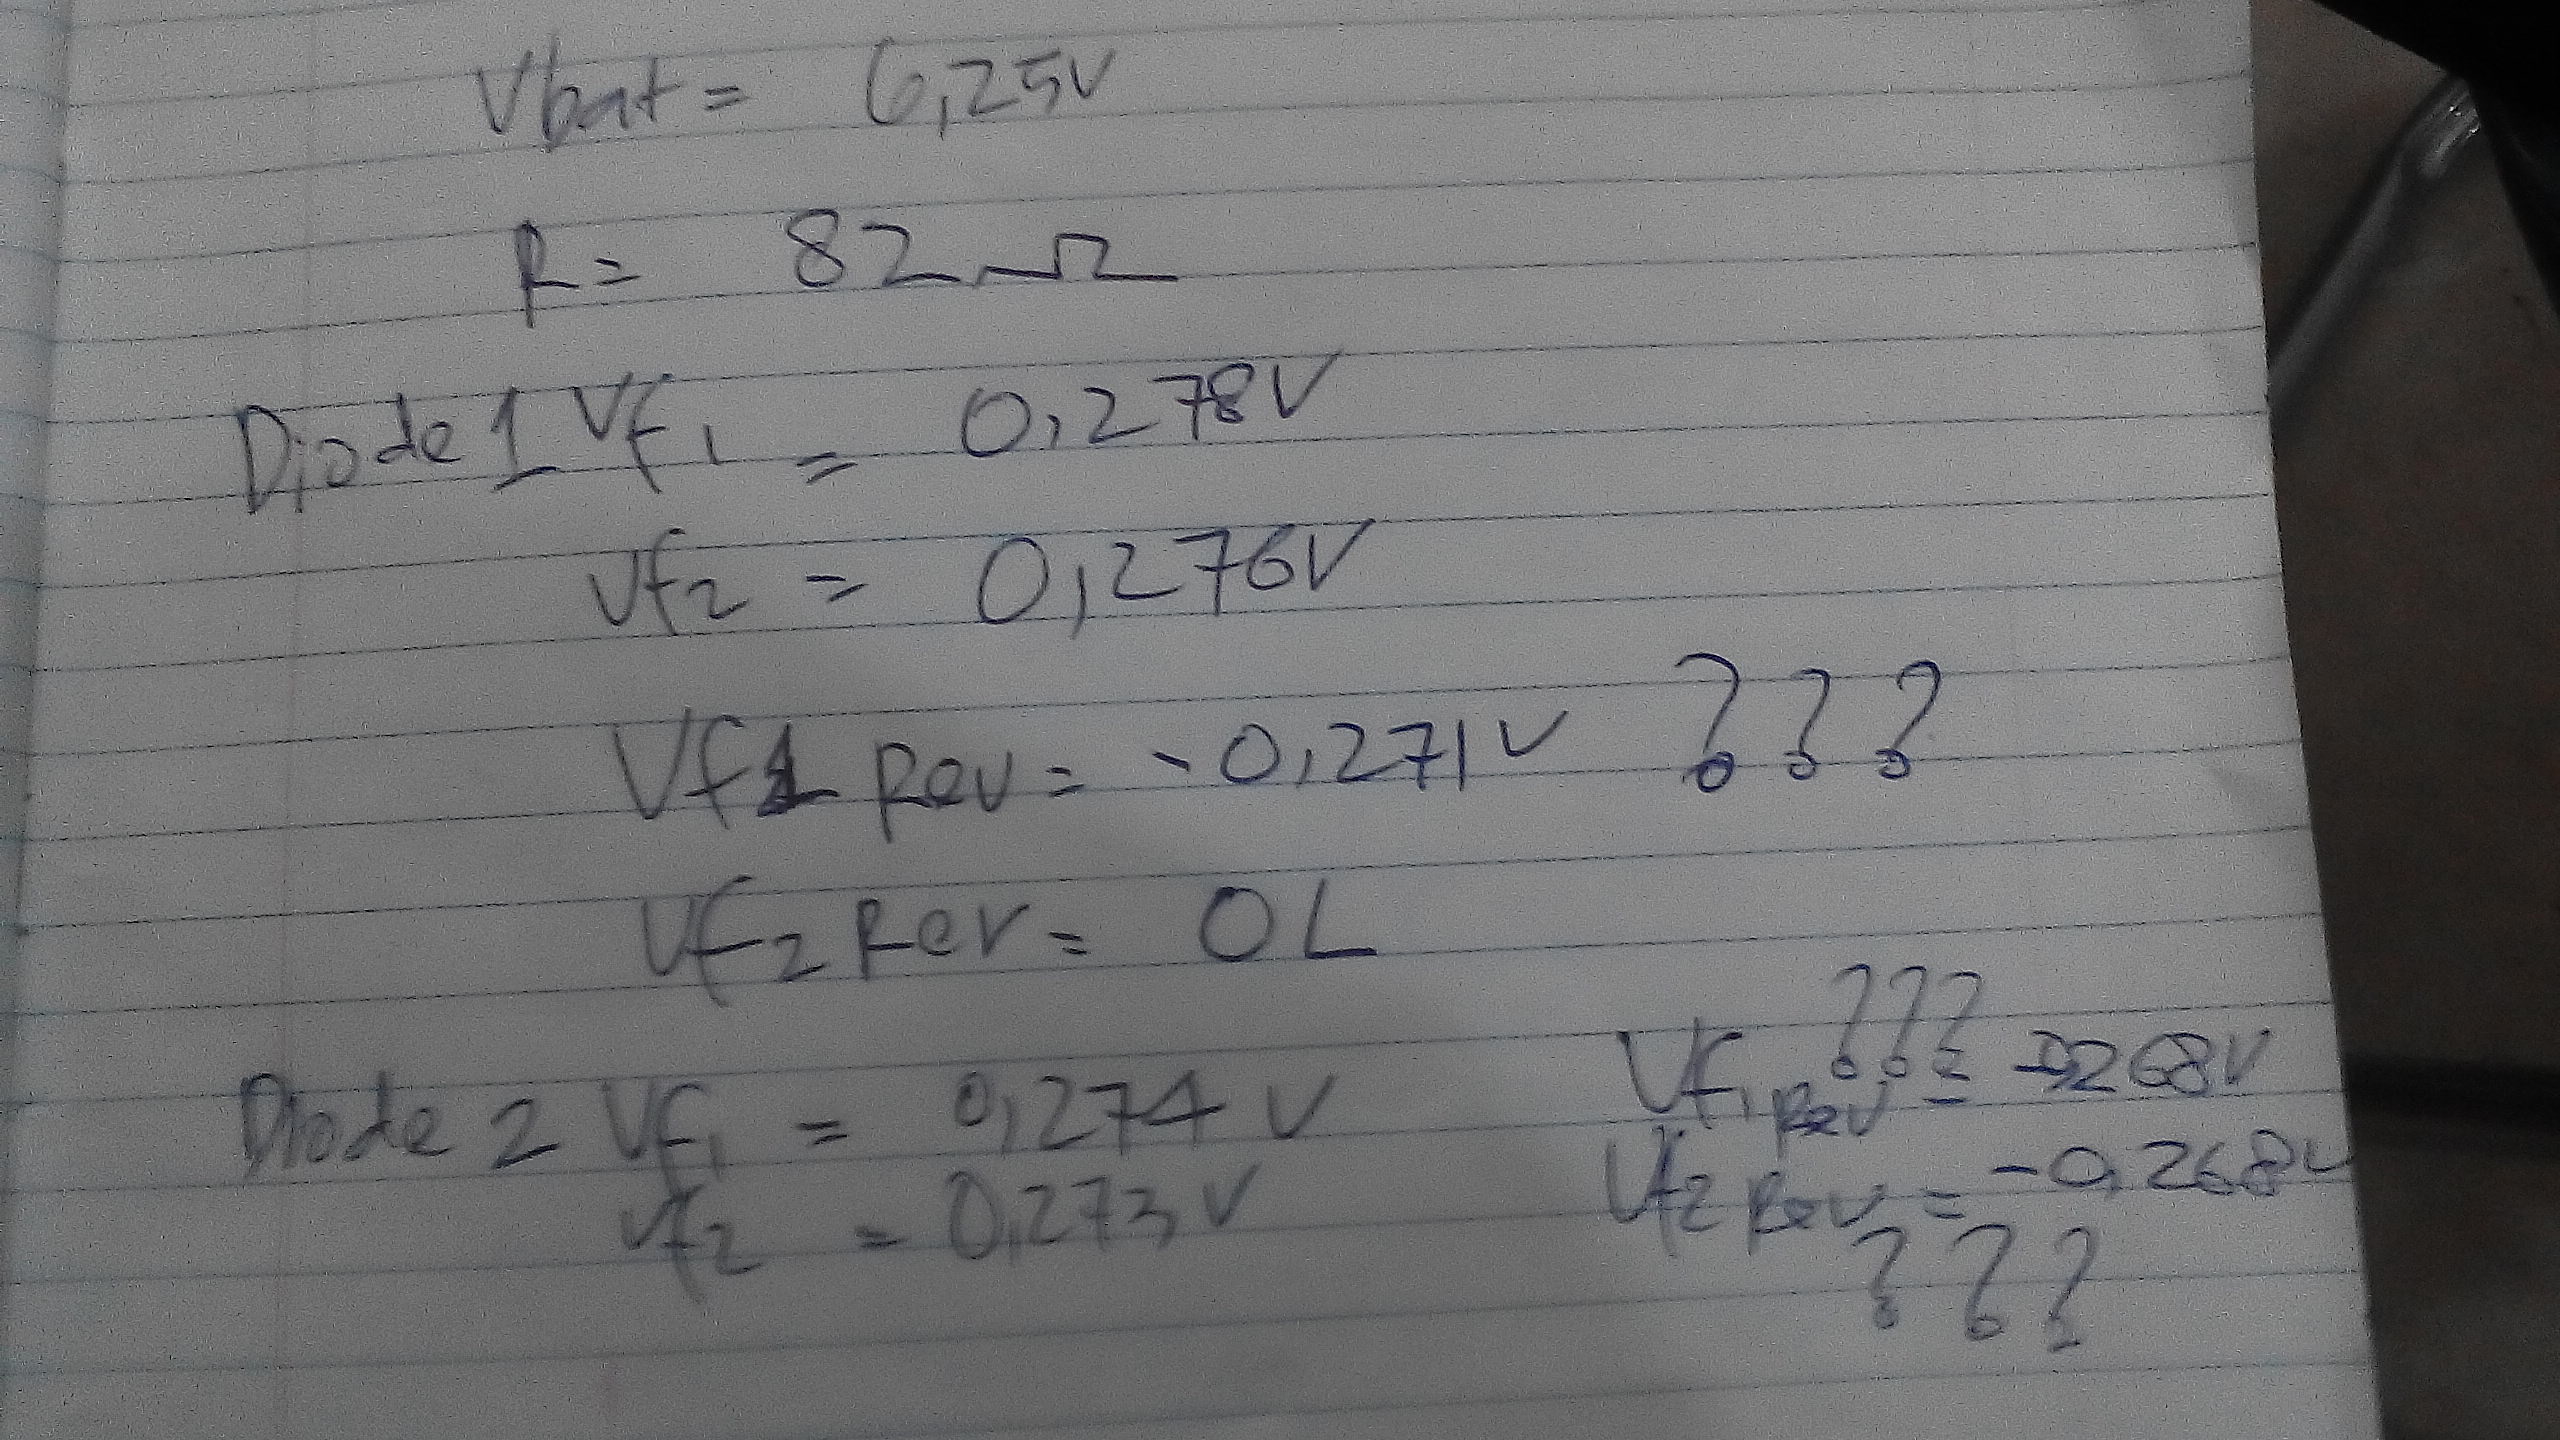 Vbat = 6,25V
R = 82 Ω
Diode 1 Vf1 = 0,278V
Vf2 = 0,276V
Vf1 Rev = -0,271V ???
Vf2 Rev = OL
Diode 2 Vf1 = 0,274V
Vf2 = 0,273V
???
Vf1 Rev = -0,268V
Vf2 Rev = -0,268V
???